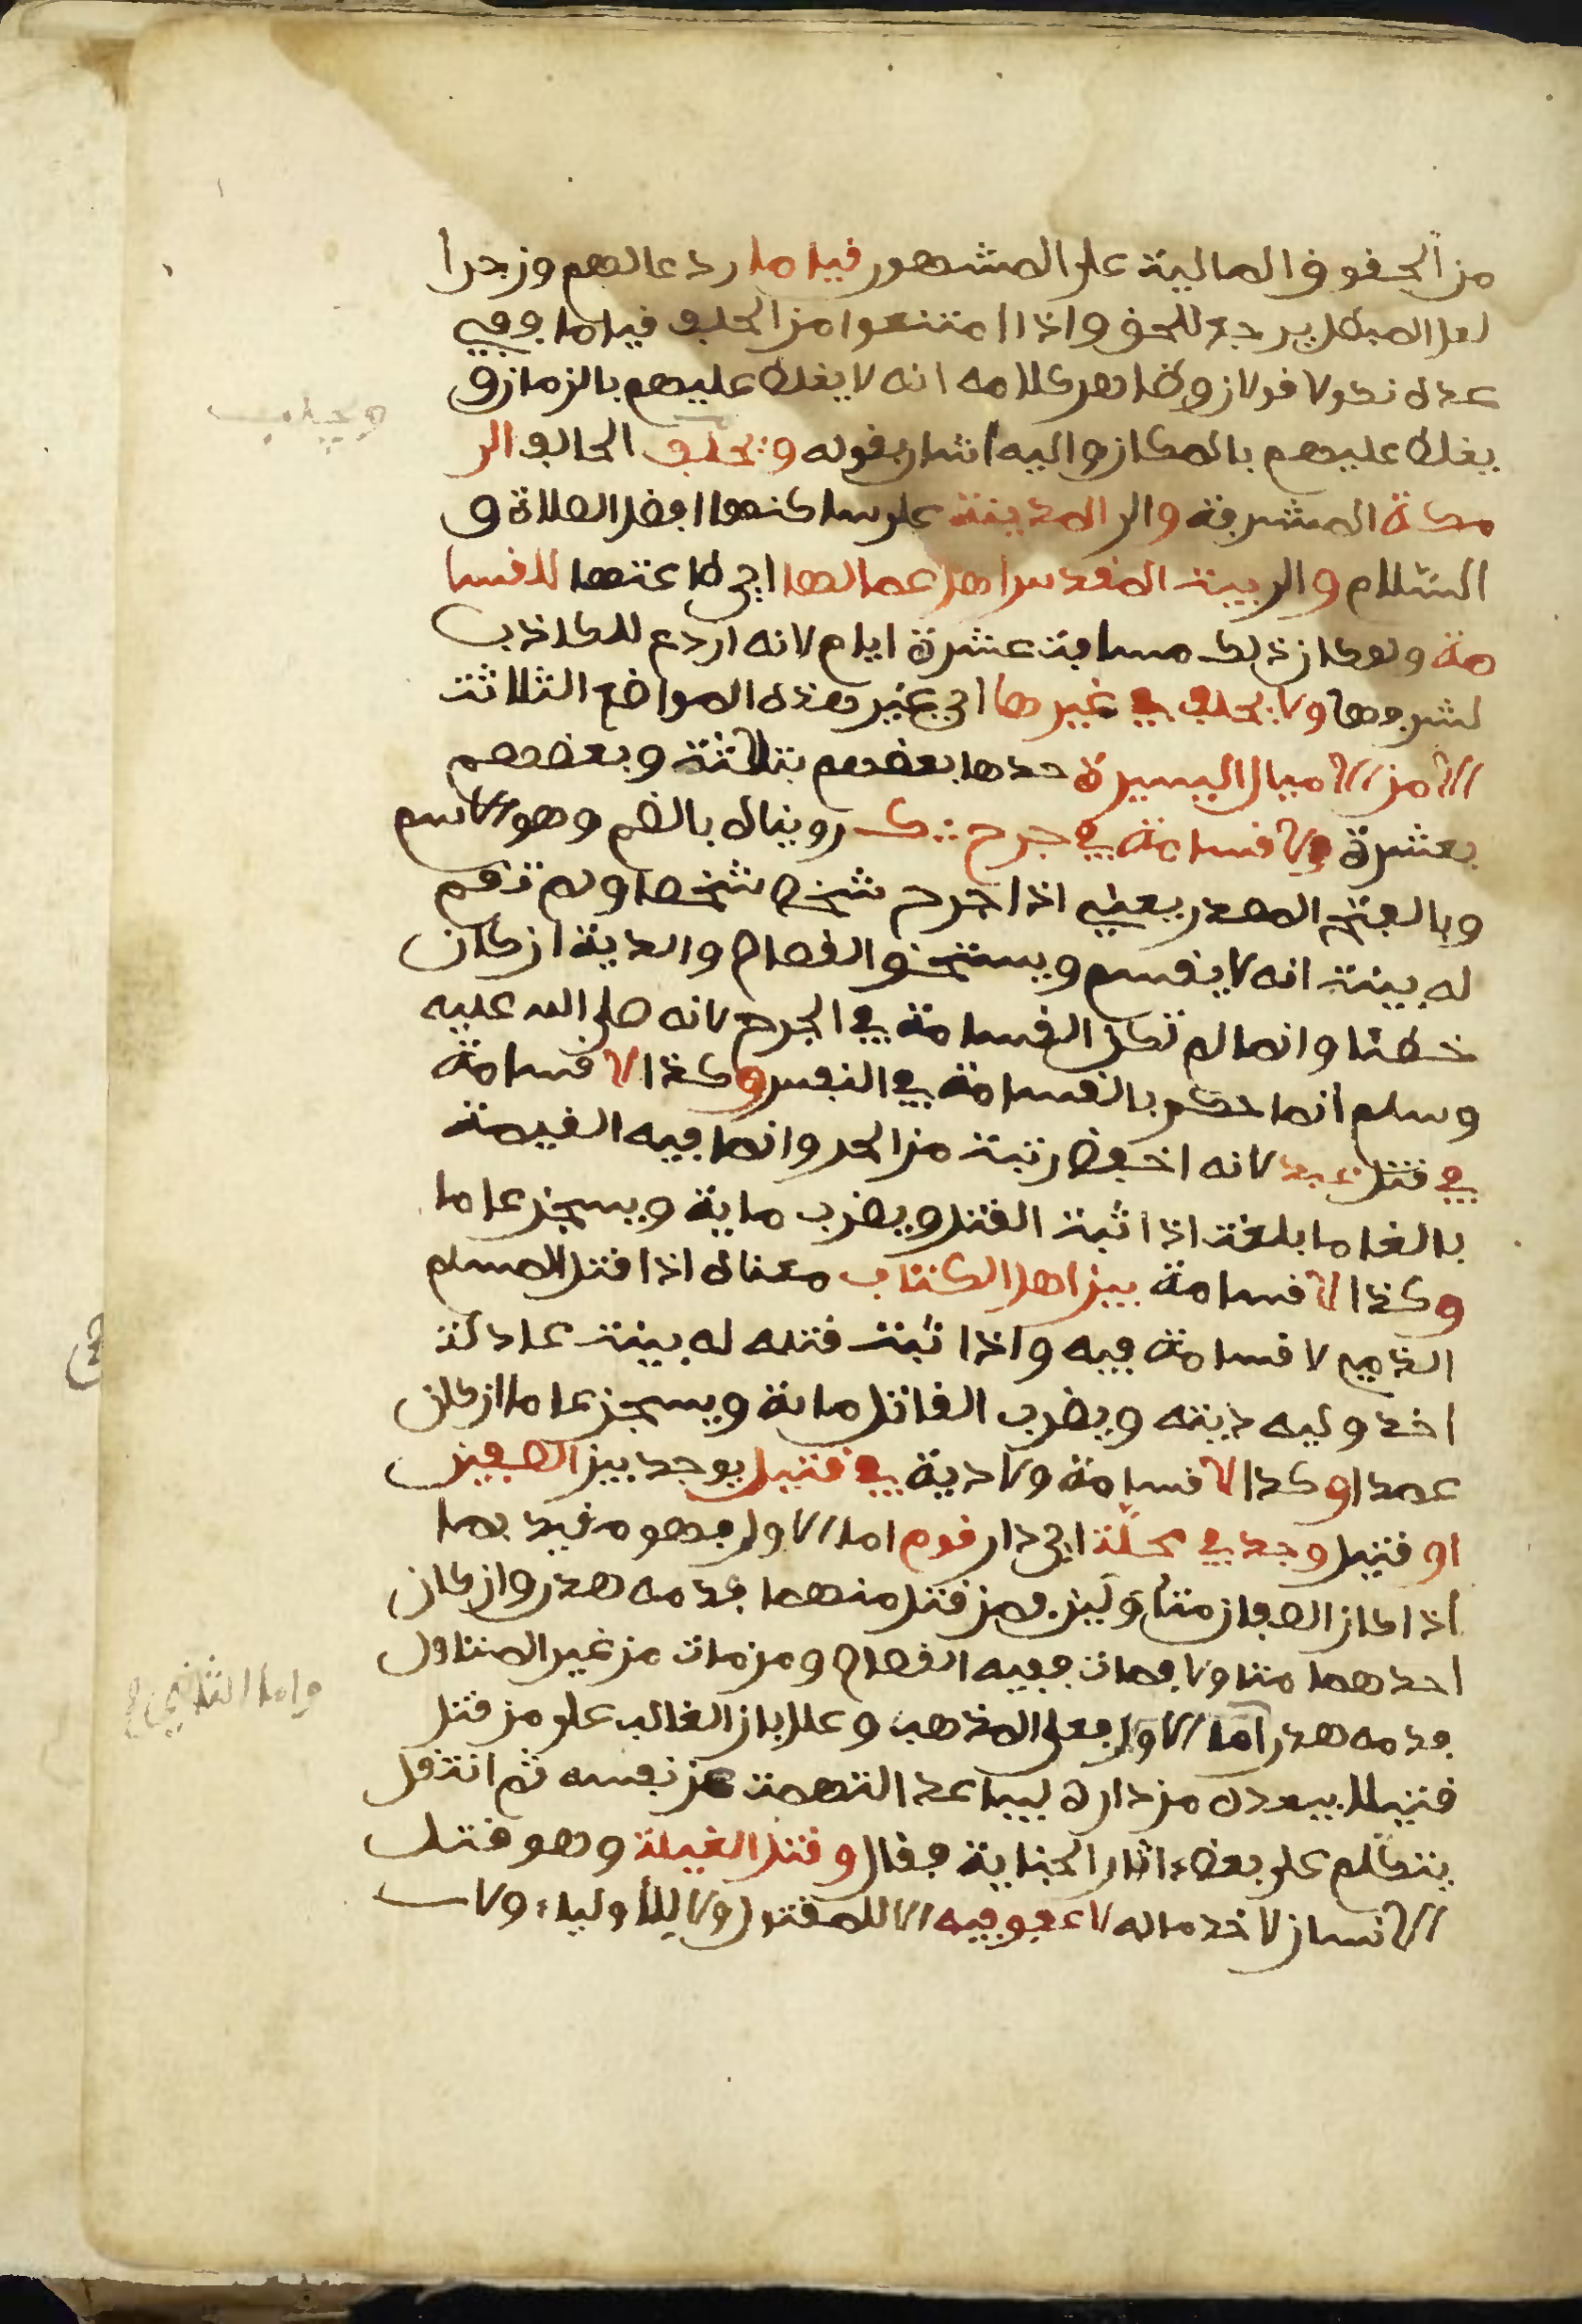 من الحقوق المالية على المشهور قياما ردعا لهم وزجرا
لعل المبطل يرجع للحق واذا امتنعوا من الحلف قياما ففي
عده نكولا قولان وظاهر كلامه انه لا يغلظ عليهم بالزمان و
يغلظ عليهم بالمكان واليه اشار بقوله ويحلف الحالف الى
مكة المشرفة والى المدينة على ساكنها افضل الصلاة و
السلام والى بيت المقدس اهل اعمالها اي طاعتها للقسا
مة ولو كان ذلك مسافة عشرة ايام لانه اردع للكاذب
لشرفها ولا يحلف في غيرها اي غير هذه المواضع الثلاثة
الا من الاميال اليسيرة حدها بعضهم بثلاثة وبعضهم
بعشرة ولا قسامة في جرح روينال بالضم وهو الاسم
وبالفتح المصدر يعني اذا جرح شخص شخصا ولم تقم
له بينة انه لا يقسم ويستحق القصاص والدية ان كان
خطئا وانما لم تكن القسامة في الجرح لانه صلى الله عليه
وسلم انما حكم بالقسامة في النفس وكذا لا قسامة
في قتل عبد لانه اخفض رتبة من الحر وانما فيه القيمة
بالغا ما بلغت اذا ثبت القتل ويضرب ماية ويسجن عاما
وكذا لا قسامة بين اهل الكتاب معناه اذا قتل المسلم
الذمي لا قسامة فيه واذا ثبت قتله له ببينة عادلة
اخذ وليه ديته ويضرب القاتل ماية ويسجن عاما ان كان
عمدا وكذا لا قسامة ولا دية في قتيل يوجد بين الصفين
او قتيل وجد في محلّة اي دار قوم اما الاول فهو مقيد بما
اذا كان الصفان متأولين فمن قتل منهما فدمه هدر وان كان
احدهما متاولا فمات ففيه القصاص ومن مات من غير المتاول
فدمه هدر اما الاول فعلى المذهب وعلل بان الغالب على من قتل
قتيلا يبعده من داره ليباعد التهمة عن نفسه ثم انتقل
يتكلم على بعض اثار الجناية فقال وقتل الغيلة وهو قتل
الانسان لاخذ ماله لا عفو فيه لا للمقتول ولا للأولياء ولا
واما الثاني